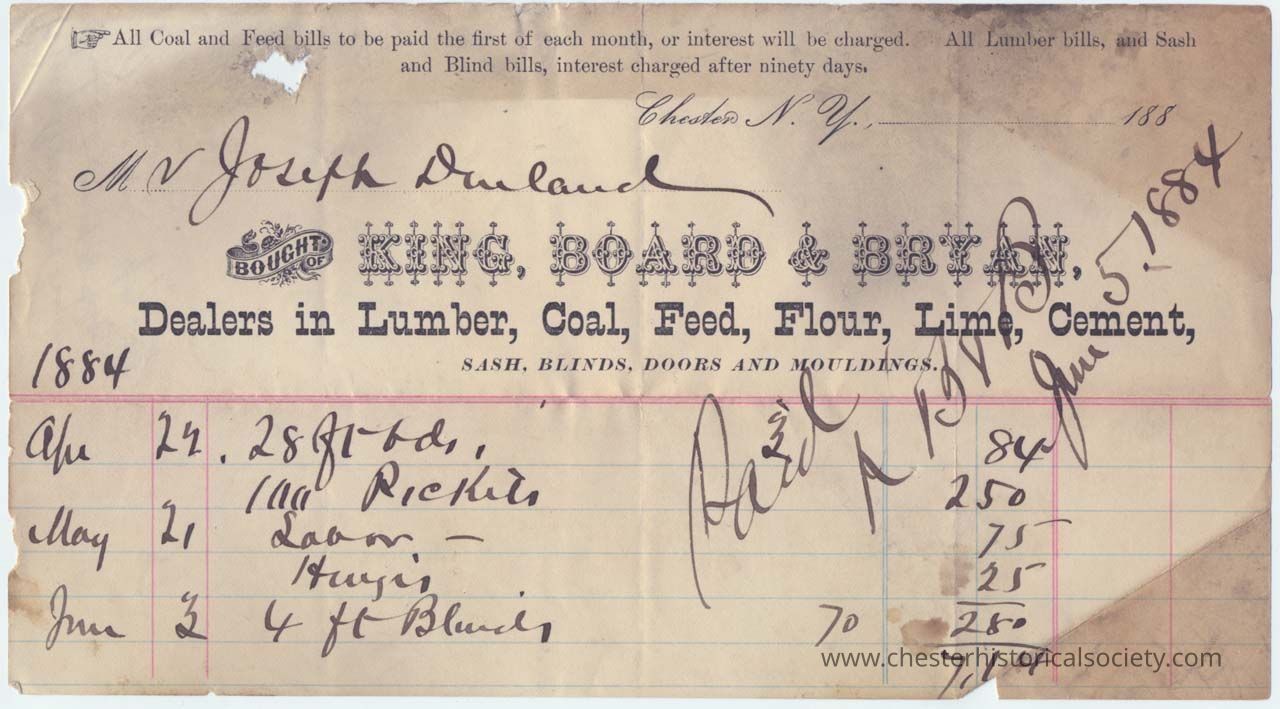 All Coal and Feed bills to be paid the first of each month, or interest will be charged. All Lumber bills, and Sash
and Blind bills, interest charged after ninety days.
Chester N. Y., 188
Mr Joseph Durland
BOUGHT OF
KING, BOARD & BRYAN,
Dealers in Lumber, Coal, Feed, Flour, Lime, Cement,
SASH, BLINDS, DOORS AND MOULDINGS.
1884
Paid
June 5. 1884
Apr 28 ft bds, 84
100 Pickets 250
May 21 Labor — 75
Hinges 25
June 3 4 ft Blinds 70 280
www.chesterhistoricalsociety.com